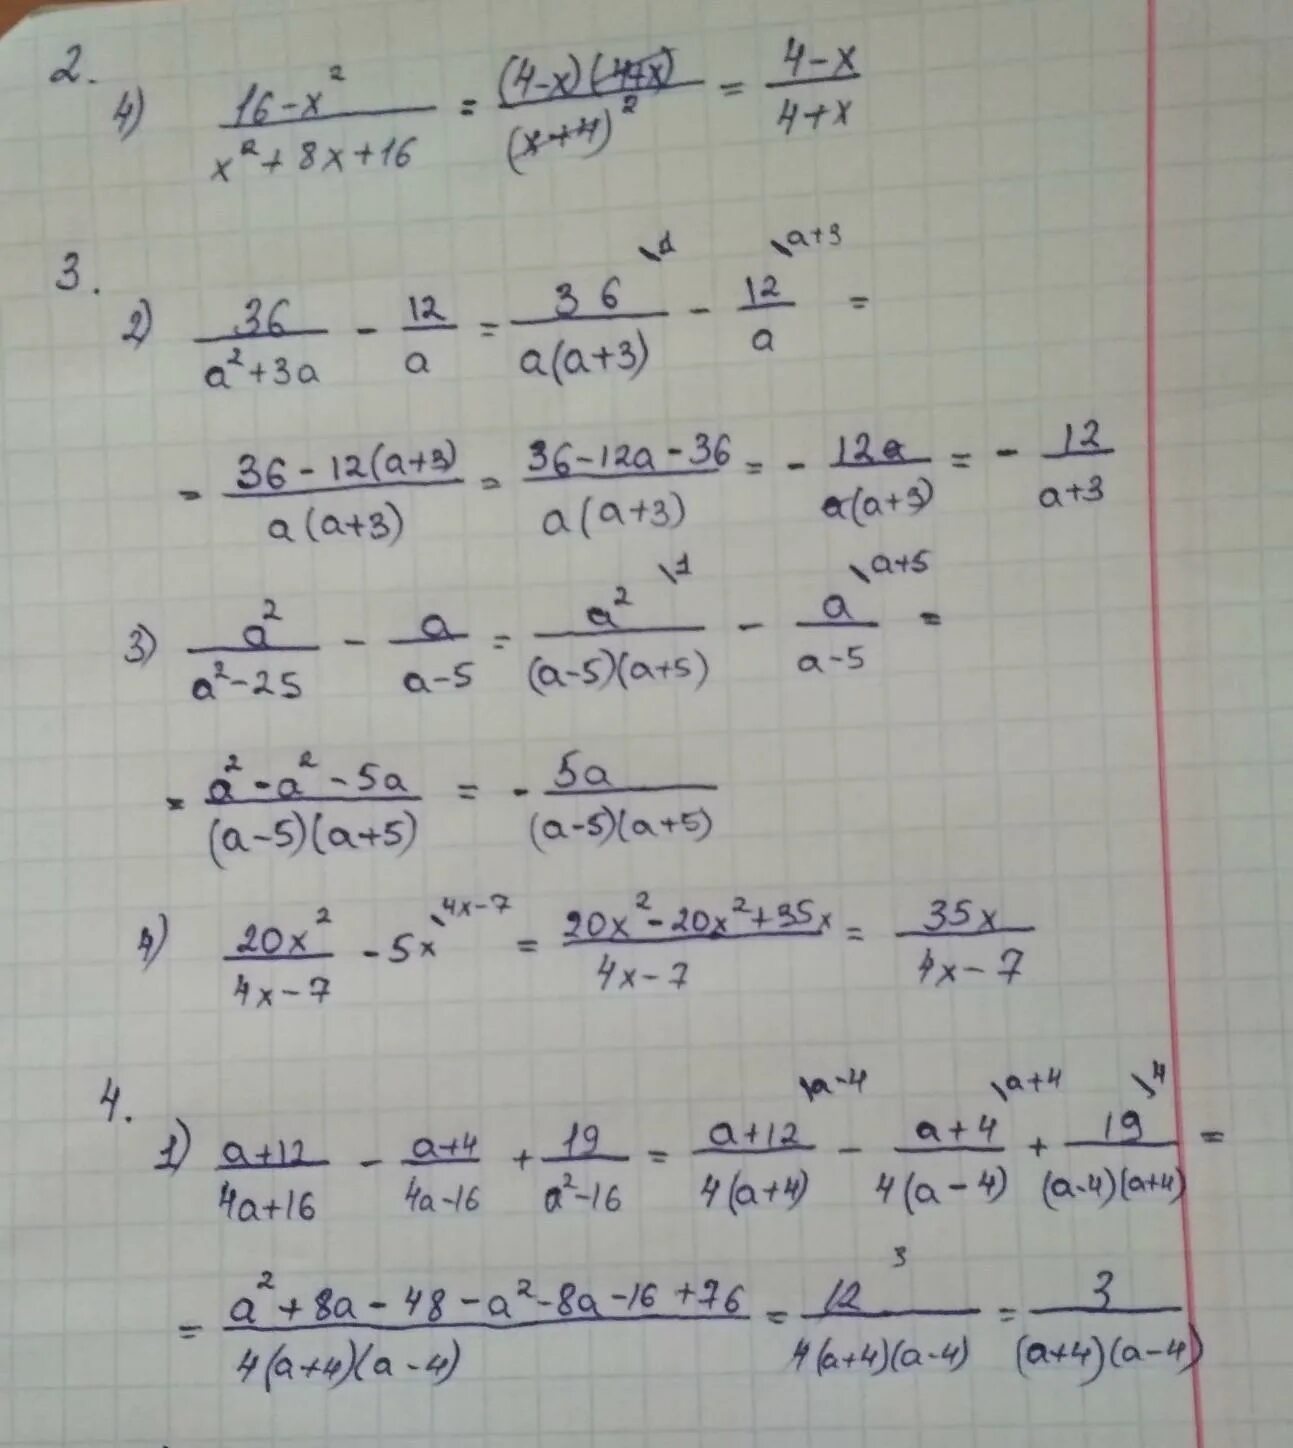 2.
4) (16-x²)/(x²+8x+16) = ((4-x)(4+x))/(x+4)² = (4-x)/(4+x)
3.
2) 36/(a²+3a) - 12/a = 36\1/(a(a+3)) - 12\a+3/a =
= (36-12(a+3))/(a(a+3)) = (36-12a-36)/(a(a+3)) = - 12a/(a(a+3)) = - 12/(a+3)
3) a²/(a²-25) - a/(a-5) = a²\1/((a-5)(a+5)) - a\a+5/(a-5) =
= (a²-a²-5a)/((a-5)(a+5)) = - 5a/((a-5)(a+5))
4) 20x²/(4x-7) - 5x\4x-7 = (20x²-20x²+35x)/(4x-7) = 35x/(4x-7)
4.
1) (a+12)/(4a+16) - (a+4)/(4a-16) + 19/(a²-16) = (a+12)\a-4/(4(a+4)) - (a+4)\a+4/(4(a-4)) + 19\4/((a-4)(a+4)) =
= (a²+8a-48-a²-8a-16+76)/(4(a+4)(a-4)) = 12 3/(4(a+4)(a-4)) = 3/((a+4)(a-4))